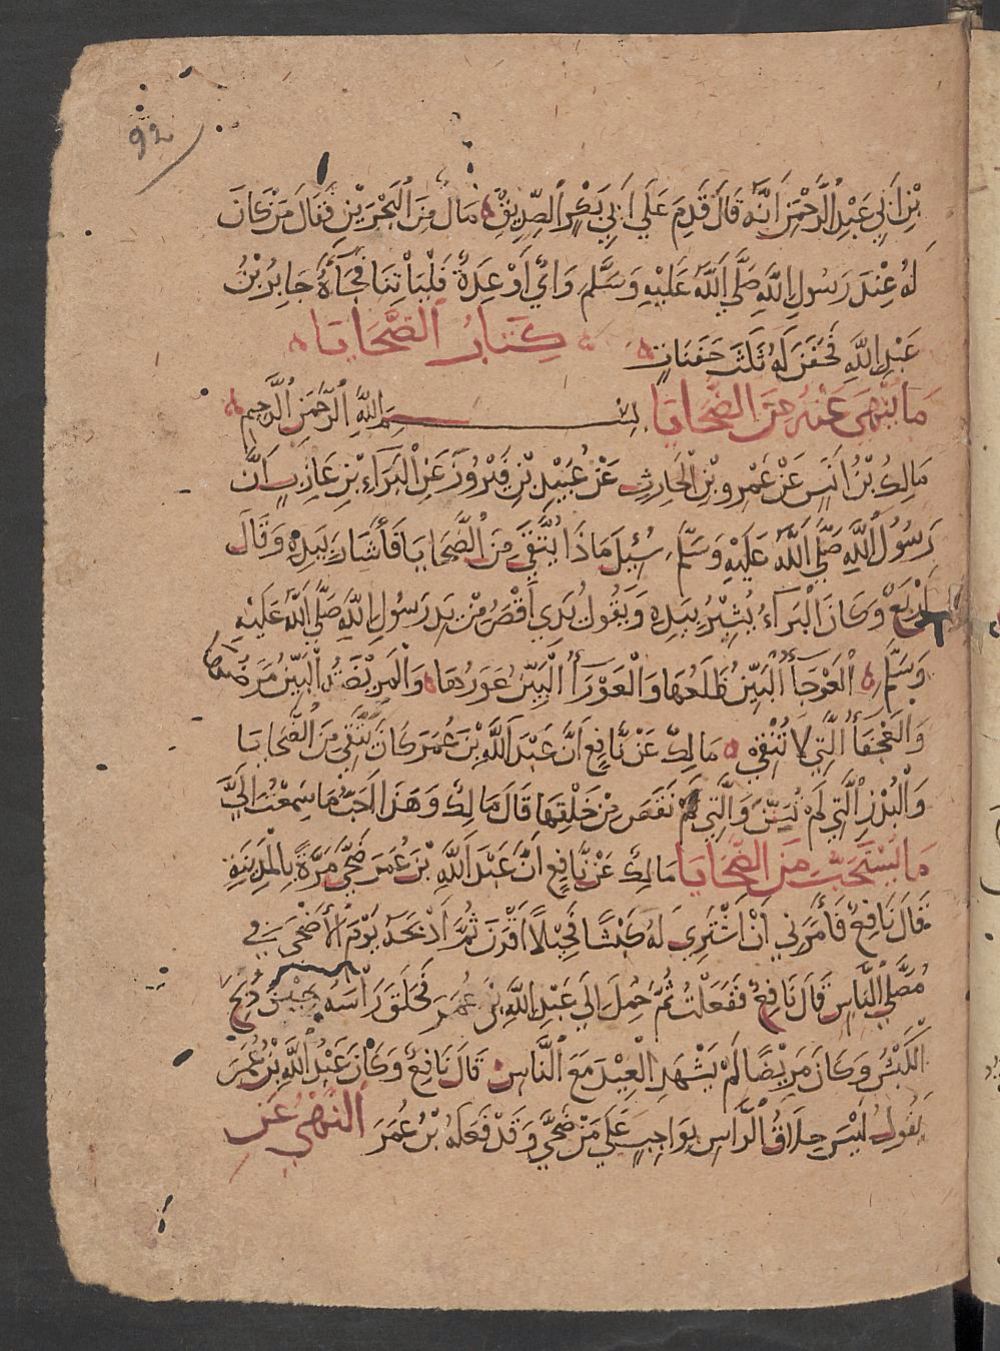 92
بْنِ أَبِي عَبْدِ الرَّحْمَنِ أَنَّهُ قَالَ قَدِمَ عَلَى أَبِي بَكْرٍ الصِّدِيقِ مَالٌ مِنَ الْبَحْرَيْنِ فَقَالَ مَنْ كَانَ
لَهُ عِنْدَ رَسُولِ اللَّهِ صَلَّى اللَّهُ عَلَيْهِ وَسَلَّمَ وَايٌ أَوْ عِدَةٌ فَلْيَأْتِنَا فَجَاءَهُ جَابِرُ بْنُ
عَبْدِ اللَّهِ فَحَفَنَ لَهُ ثَلَثَ حَفَنَاتٍ كِتَابُ الضَّحَايَا
مَا يُنْهَى عَنْهُ مِنَ الضَّحَايَا بِسْمِ اللَّهِ الرَّحْمَنِ الرَّحِيمِ
مَالِكُ بْنُ أَنَسٍ عَنْ عَمْرِو بْنِ الْحَارِثِ عَنْ عُبَيْدِ بْنِ فَيْرُوزَ عَنِ الْبَرَاءِ بْنِ عَازِبٍ أَنَّ
رَسُولَ اللَّهِ صَلَّى اللَّهُ عَلَيْهِ وَسَلَّمَ سُئِلَ مَاذَا يُتَّقَى مِنَ الضَّحَايَا فَأَشَارَ بِيَدِهِ وَقَالَ
أَرْبَعٌ وَكَانَ الْبَرَاءُ يُشِيْرُ بِيَدِهِ وَيَقُولُ يَدِي أَقْصَرُ مِنْ يَدِ رَسُولِ اللَّهِ صَلَّى اللَّهُ عَلَيْهِ
وَسَلَّمَ الْعَوْجَاءُ الْبَيِّنُ ظَلَعُهَا وَالْعَوْرَاءُ الْبَيِّنُ عَوَرُهَا وَالْمَرِيْضَةُ الْبَيِّنُ مَرَضُهَا
وَالْعَجْفَاءُ الَّتِي لَا تُنْقِي مَالِكٌ عَنْ نَافِعٍ أَنَّ عَبْدَ اللَّهِ بْنَ عُمَرَ كَانَ يَتَّقِي مِنَ الضَّحَايَا
وَالْبُدْنِ الَّتِي لَمْ تُسِنَّ وَالَّتِي نَقَصَ مِنْ خَلْقِهَا قَالَ مَالِكٌ وَهَذَا أَحَبُّ مَا سَمِعْتُ إِلَيَّ
مَا يُسْتَحَبُّ مِنَ الضَّحَايَا مَالِكٌ عَنْ نَافِعٍ أَنَّ عَبْدَ اللَّهِ بْنَ عُمَرَ ضَحَّى مَرَّةً بِالْمَدِيْنَةِ
قَالَ نَافِعٌ فَأَمَرَنِي أَنْ أَشْتَرِيَ لَهُ كَبْشًا فَحِيْلًا أَقْرَنَ ثُمَّ أَذْبَحَهُ يَوْمَ الْأَضْحَى فِي
مُصَلَّى النَّاسِ قَالَ نَافِعٌ فَفَعَلْتُ ثُمَّ حُمِلَ إِلَى عَبْدِ اللَّهِ بْنِ عُمَرَ فَحَلَقَ رَأْسَهُ حِيْنَ ذُبِحَ
الْكَبْشُ وَكَانَ مَرِيْضًا لَمْ يَشْهَدِ الْعِيْدَ مَعَ النَّاسِ قَالَ نَافِعٌ وَكَانَ عَبْدُ اللَّهِ بْنُ عُمَرَ
يَقُولُ لَيْسَ حِلَاقُ الرَّاسِ بِوَاجِبٍ عَلَى مَنْ ضَحَّى وَقَدْ فَعَلَهُ بْنُ عُمَرَ النَّهْيُ عَنْ